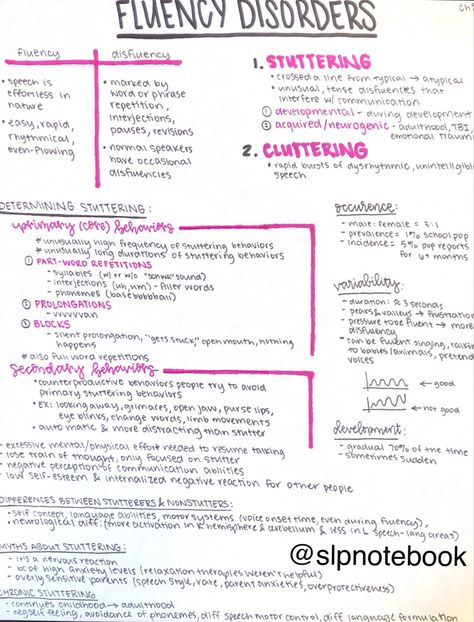 FLUENCY DISORDERS
fluency
disfluency
• speech is
effortless in
nature
• easy, rapid,
rhythmical,
even-flowing
• marked by
word or phrase
repetition,
interjections,
pauses, revisions
• normal speakers
have occasional
disfluencies
1. STUTTERING
• crossed a line from typical → atypical
• unusual, tense disfluencies that
interfere w/ communication
① developmental - during development
② acquired/neurogenic - adulthood, TBI,
emotional trauma
2. CLUTTERING
• rapid bursts of dysrhythmic, unintelligible
speech
DETERMINING STUTTERING:
primary (core) behaviors
* unusually high frequency of stuttering behaviors
* unusually long durations of stuttering behaviors
① PART-WORD REPETITIONS
- syllables (w/ or w/o sound)
- interjections (uh, um) - filler words
- phonemes (basebbbbball)
② PROLONGATIONS
- vvvvvan
③ BLOCKS
- silent prolongation, "gets stuck", open mouth, nothing
happens
* also full word repetitions
secondary behaviors
• counterproductive behaviors people try to avoid
primary stuttering behaviors
• ex: looking away, grimaces, open jaw, purse lips,
eye blinks, change words, limb movements
• automatic & more distracting than stutter
- excessive mental/physical effort needed to resume talking
- lose train of thought, only focused on stutter
- negative perception of communication abilities
- low self-esteem & internalized negative reaction for other people
occurence:
- male: female = 3:1
- prevalence = 1% school pop
- incidence = 5% pop reports
for 6+ months
variability:
- duration: ≈ 3 seconds
- peaks & valleys → frustration
- pressure to be fluent → more
disfluency
- can be fluent singing, talking
to babies/animals, pretend
voices
← good
← not good
development:
- gradual 70% of the time
- sometimes sudden
DIFFERENCES BETWEEN STUTTERERS & NONSTUTTERS:
• self concept, language abilities, motor systems (voice onset time, even during fluency),
• neurological diff: (more activation in R hemisphere & cerebellum & less in L speech-lang areas)
MYTHS ABOUT STUTTERING:
- it's a nervous reaction
- bc of high anxiety levels (relaxation therapies weren't helpful)
- overly sensitive parents (speech style, rate, parent anxieties, overprotectiveness)
@slpnotebook
CHRONIC STUTTERING:
- continues childhood → adulthood
- neg self feeling, avoidance of phonemes, diff speech motor control, diff language formulation